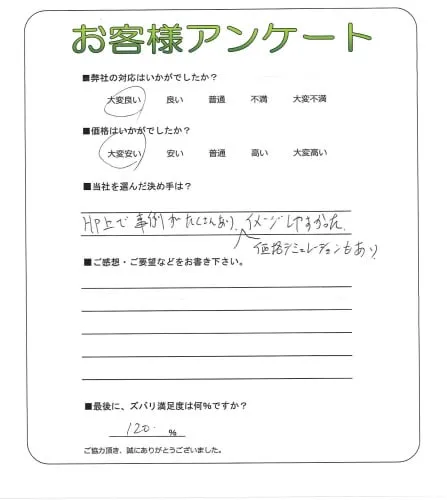 お客様アンケート
■弊社の対応はいかがでしたか?
大変良い 良い 普通 不満 大変不満
■価格はいかがでたか?
大変安い 安い 普通 高い 大変高い
■当社を選んだ決め手は?
HP上で事例がたくさんあり、イメージしやすかった
価格シミュレーションもあり
■ご感想・ご要望などをお書き下さい。
■最後に、ズバリ満足度は何%ですか?
120. %
ご協力頂き、誠にありがとうございました。